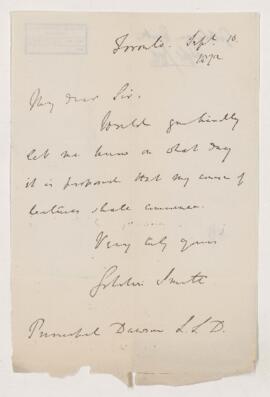 Toronto. Sept. 10.
1872
My dear Sir.
Would you kindly
let me know on what day
it is proposed that my course of
lectures shall commence.
Very truly yours
Goldwin Smith
Principal Dawson L.L.D.